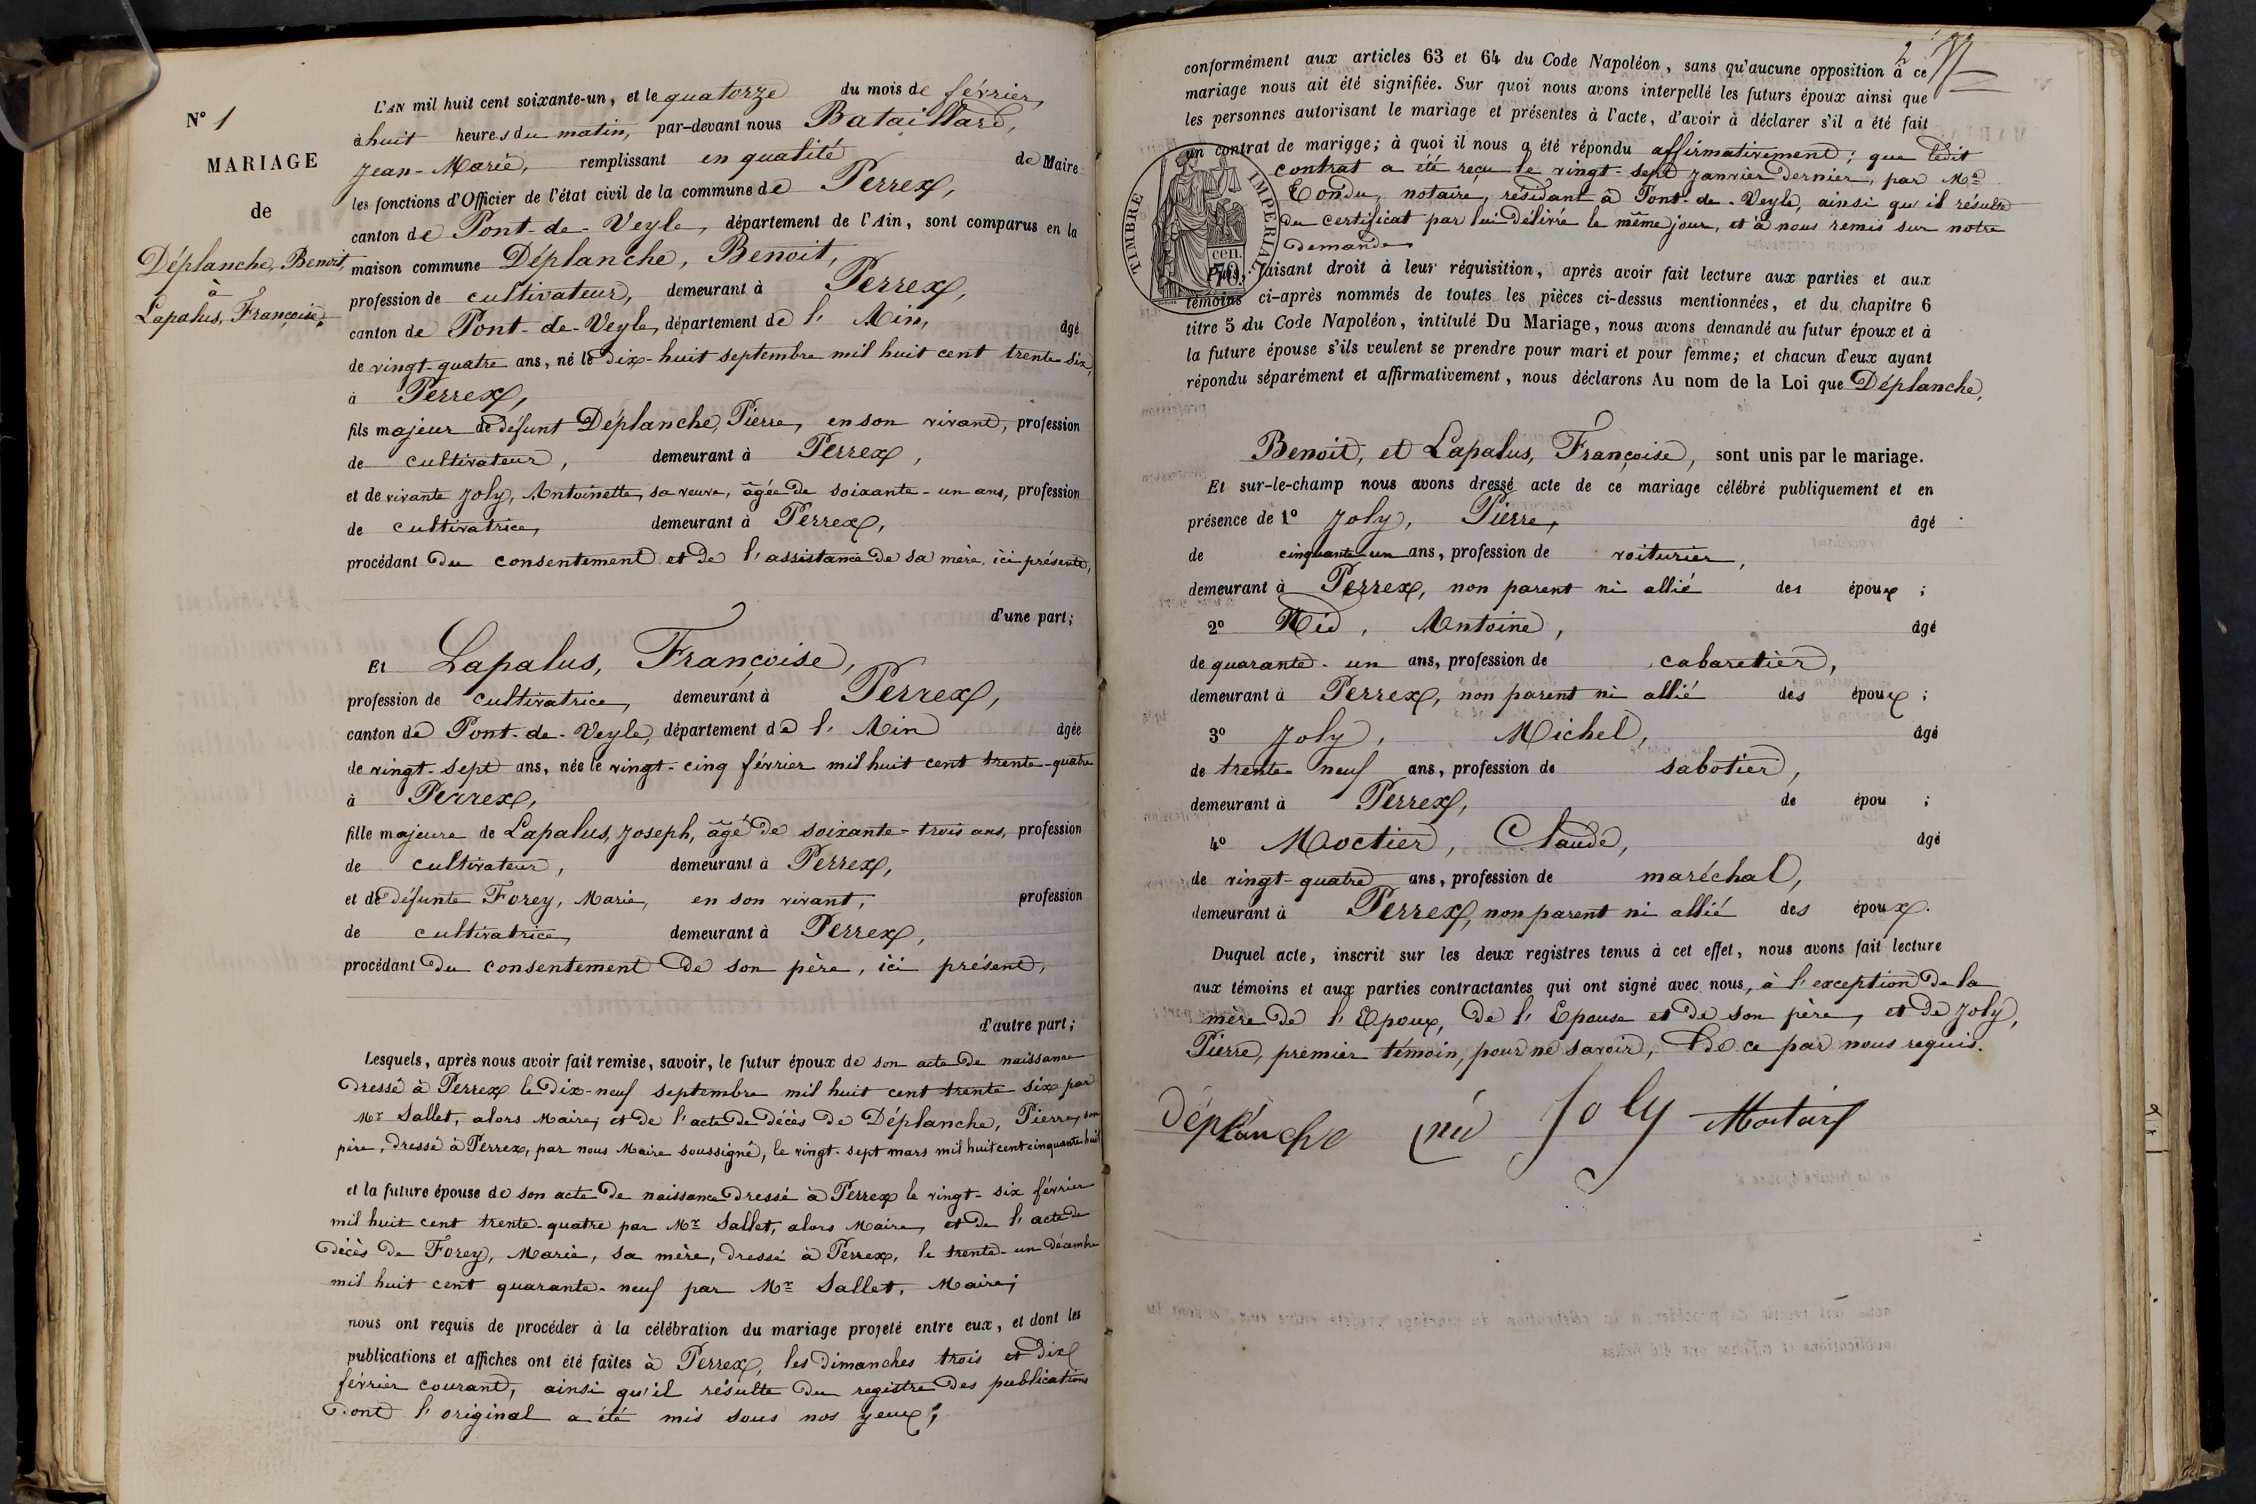 N° 1
MARIAGE
de
Déplanche, Benoit,
à
Lapalus, Françoise.
L'AN mil huit cent soixante-un, et le quatorze du mois de février,
à huit heures du matin, par-devant nous Bataillard,
Jean-Marie, remplissant en qualité de Maire
les fonctions d'Officier de l'état civil de la commune de Perrex,
canton de Pont-de-Veyle, département de l'Ain, sont comparus en la
maison commune Déplanche, Benoit,
profession de cultivateur, demeurant à Perrex,
canton de Pont-de-Veyle, département de l'Ain, âgé
de vingt-quatre ans, né le dix-huit septembre mil huit cent trente six,
à Perrex,
fils majeur de défunt Déplanche, Pierre, en son vivant, profession
de cultivateur, demeurant à Perrex,
et de vivante Joly, Antoinette, sa veuve, âgée de soixante-un ans, profession
de cultivatrice, demeurant à Perrex,
procédant du consentement et de l'assistance de sa mère, ici présente,
d'une part;
Et Lapalus, Françoise,
profession de cultivatrice, demeurant à Perrex,
canton de Pont-de-Veyle, département de l'Ain âgée
de vingt-sept ans, née le vingt-cinq février mil huit cent trente-quatre
à Perrex,
fille majeure de Lapalus, Joseph, âgé de soixante-trois ans, profession
de cultivateur, demeurant à Perrex,
et de défunte Forey, Marie, en son vivant, profession
de cultivatrice, demeurant à Perrex,
procédant du consentement de son père, ici présent,
d'autre part;
Lesquels, après nous avoir fait remise, savoir, le futur époux de son acte de naissance
dressé à Perrex le dix-neuf septembre mil huit cent trente six par
Mr Sallet, alors Maire, et de l'acte de décès de Déplanche, Pierre, son
père, dressé à Perrex, par nous Maire soussigné, le vingt-sept mars mil huit cent cinquante huit
et la future épouse de son acte de naissance dressé à Perrex le vingt-six février
mil huit cent trente-quatre par Mr Sallet, alors Maire, et de l'acte de
décès de Forey, Marie, sa mère, dressé à Perrex, le trente-un décembre
mil huit cent quarante-neuf par Mr Sallet, Maire;
nous ont requis de procéder à la célébration du mariage projeté entre eux, et dont les
publications et affiches ont été faites à Perrex, les dimanches trois et dix
février courant, ainsi qu'il résulte du registre des publications
dont l'original a été mis sous nos yeux;
2
conformément aux articles 63 et 64 du Code Napoléon, sans qu'aucune opposition à ce
mariage nous ait été signifiée. Sur quoi nous avons interpellé les futurs époux ainsi que
les personnes autorisant le mariage et présentes à l'acte, d'avoir à déclarer s'il a été fait
un contrat de marigge; à quoi il nous a été répondu affirmativement; que ledit
contrat a été reçu le vingt-sept janvier dernier, par Me
Condu, notaire, résidant à Pont-de-Veyle, ainsi qu'il résulte
du certificat par lui délivré le même jour, et à nous remis sur notre
demande
TIMBRE IMPERIAL
70 cen.
Puis, faisant droit à leur réquisition, après avoir fait lecture aux parties et aux
témoins ci-après nommés de toutes les pièces ci-dessus mentionnées, et du chapitre 6
titre 5 du Code Napoléon, intitulé Du Mariage, nous avons demandé au futur époux et à
la future épouse s'ils veulent se prendre pour mari et pour femme; et chacun d'eux ayant
répondu séparément et affirmativement, nous déclarons Au nom de la Loi que Déplanche,
Benoit, et Lapalus, Françoise, sont unis par le mariage.
Et sur-le-champ nous avons dressé acte de ce mariage célébré publiquement et en
présence de 1° Joly, Pierre, âgé
de cinquante-un ans, profession de voiturier,
demeurant à Perrex, non parent ni allié des époux;
2° Nid, Antoine, âgé
de quarante-un ans, profession de cabaretier,
demeurant à Perrex, non parent ni allié des époux;
3° Joly, Michel, âgé
de trente neuf ans, profession de sabotier,
demeurant à Perrex, de épou;
4° Moctier, Claude, âgé
de vingt-quatre ans, profession de maréchal,
demeurant à Perrex, non parent ni allié des époux.
Duquel acte, inscrit sur les deux registres tenus à cet effet, nous avons fait lecture
aux témoins et aux parties contractantes qui ont signé avec nous, à l'exception de la
mère de l'Epoux, de l'Epouse et de son père, et de Joly,
Pierre, premier témoin, pour ne savoir, de ce par nous requis.
Déplanche nid Joly